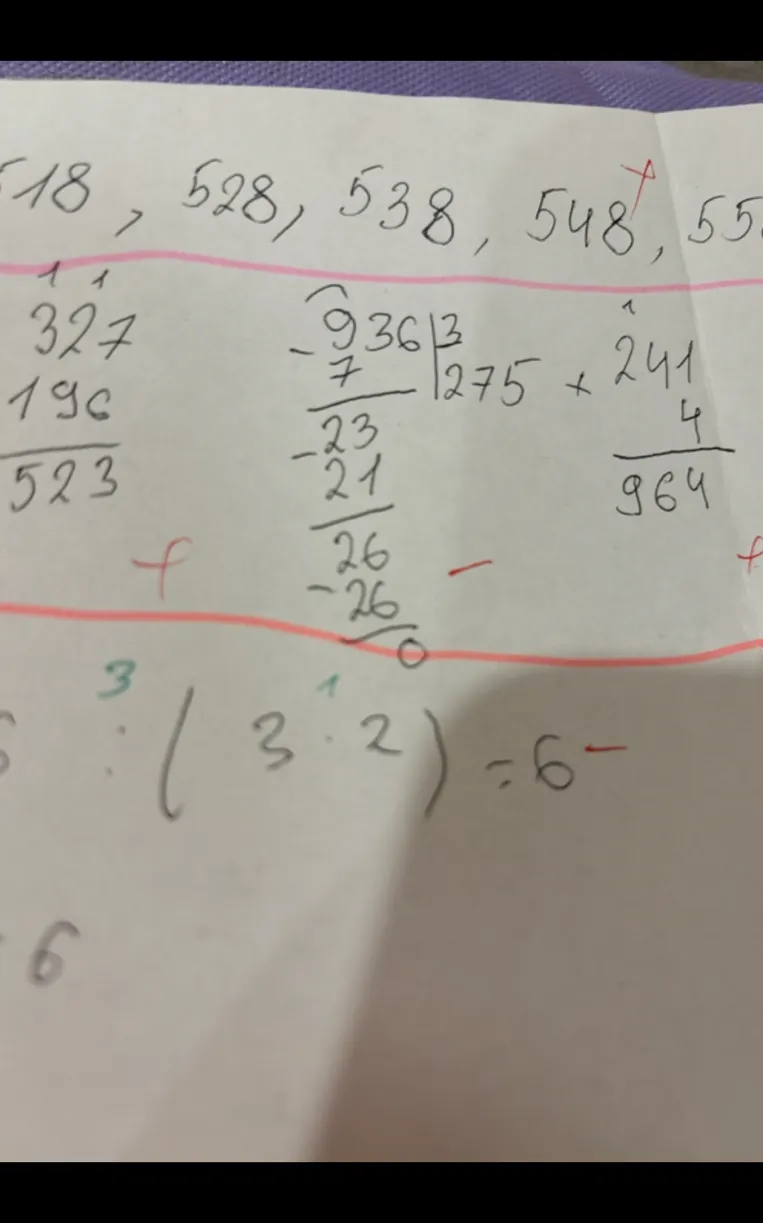 518, 528, 538, 548, 55
+
1 1
327
196
523
+
- 936 | 3
7 | 275
- 23
21
26
- 26
0
-
1
× 241
4
964
+
3 1
: ( 3 · 2 ) = 6 -
6